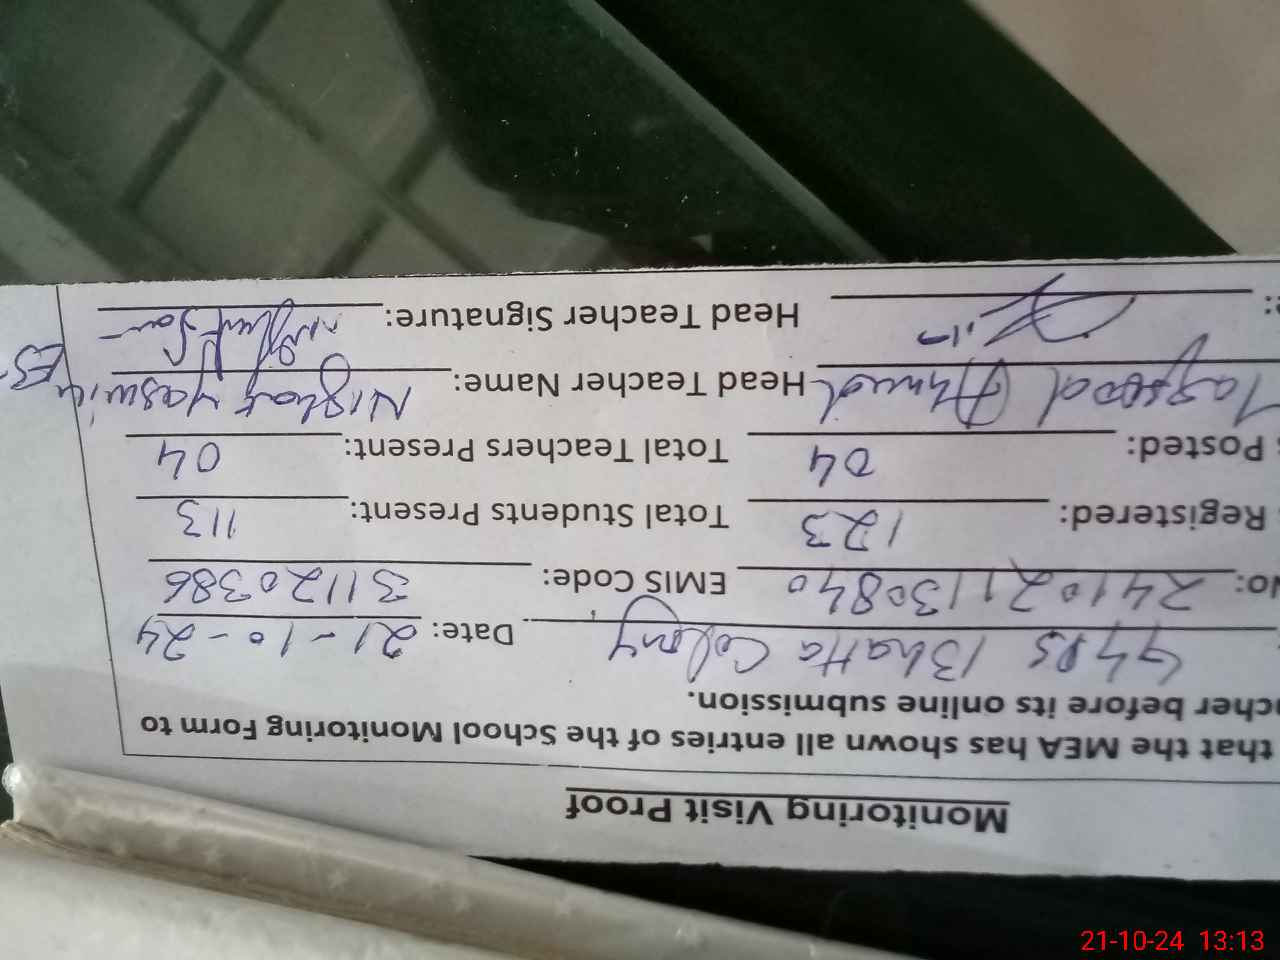 Monitoring Visit Proof
that the MEA has shown all entries of the School Monitoring Form to
cher before its online submission.
GGPS Bhatta Colony Date: 21-10-24
No: 241021130840 EMIS Code: 31120386
Registered: 123 Total Students Present: 113
Posted: 04 Total Teachers Present: 04
Maqsood Ahmed Head Teacher Name: Nighat Yasmin
Head Teacher Signature:
21-10-24 13:13